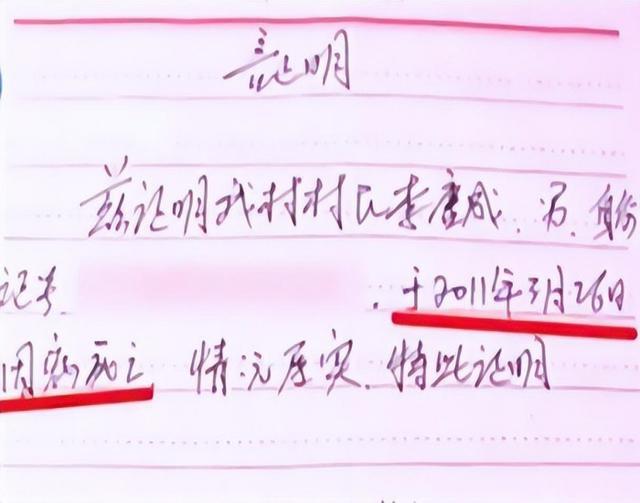 证明
兹证明我村村民李度成,男,身份
证号 ,于2011年3月26日
因病死亡 情况属实,特此证明